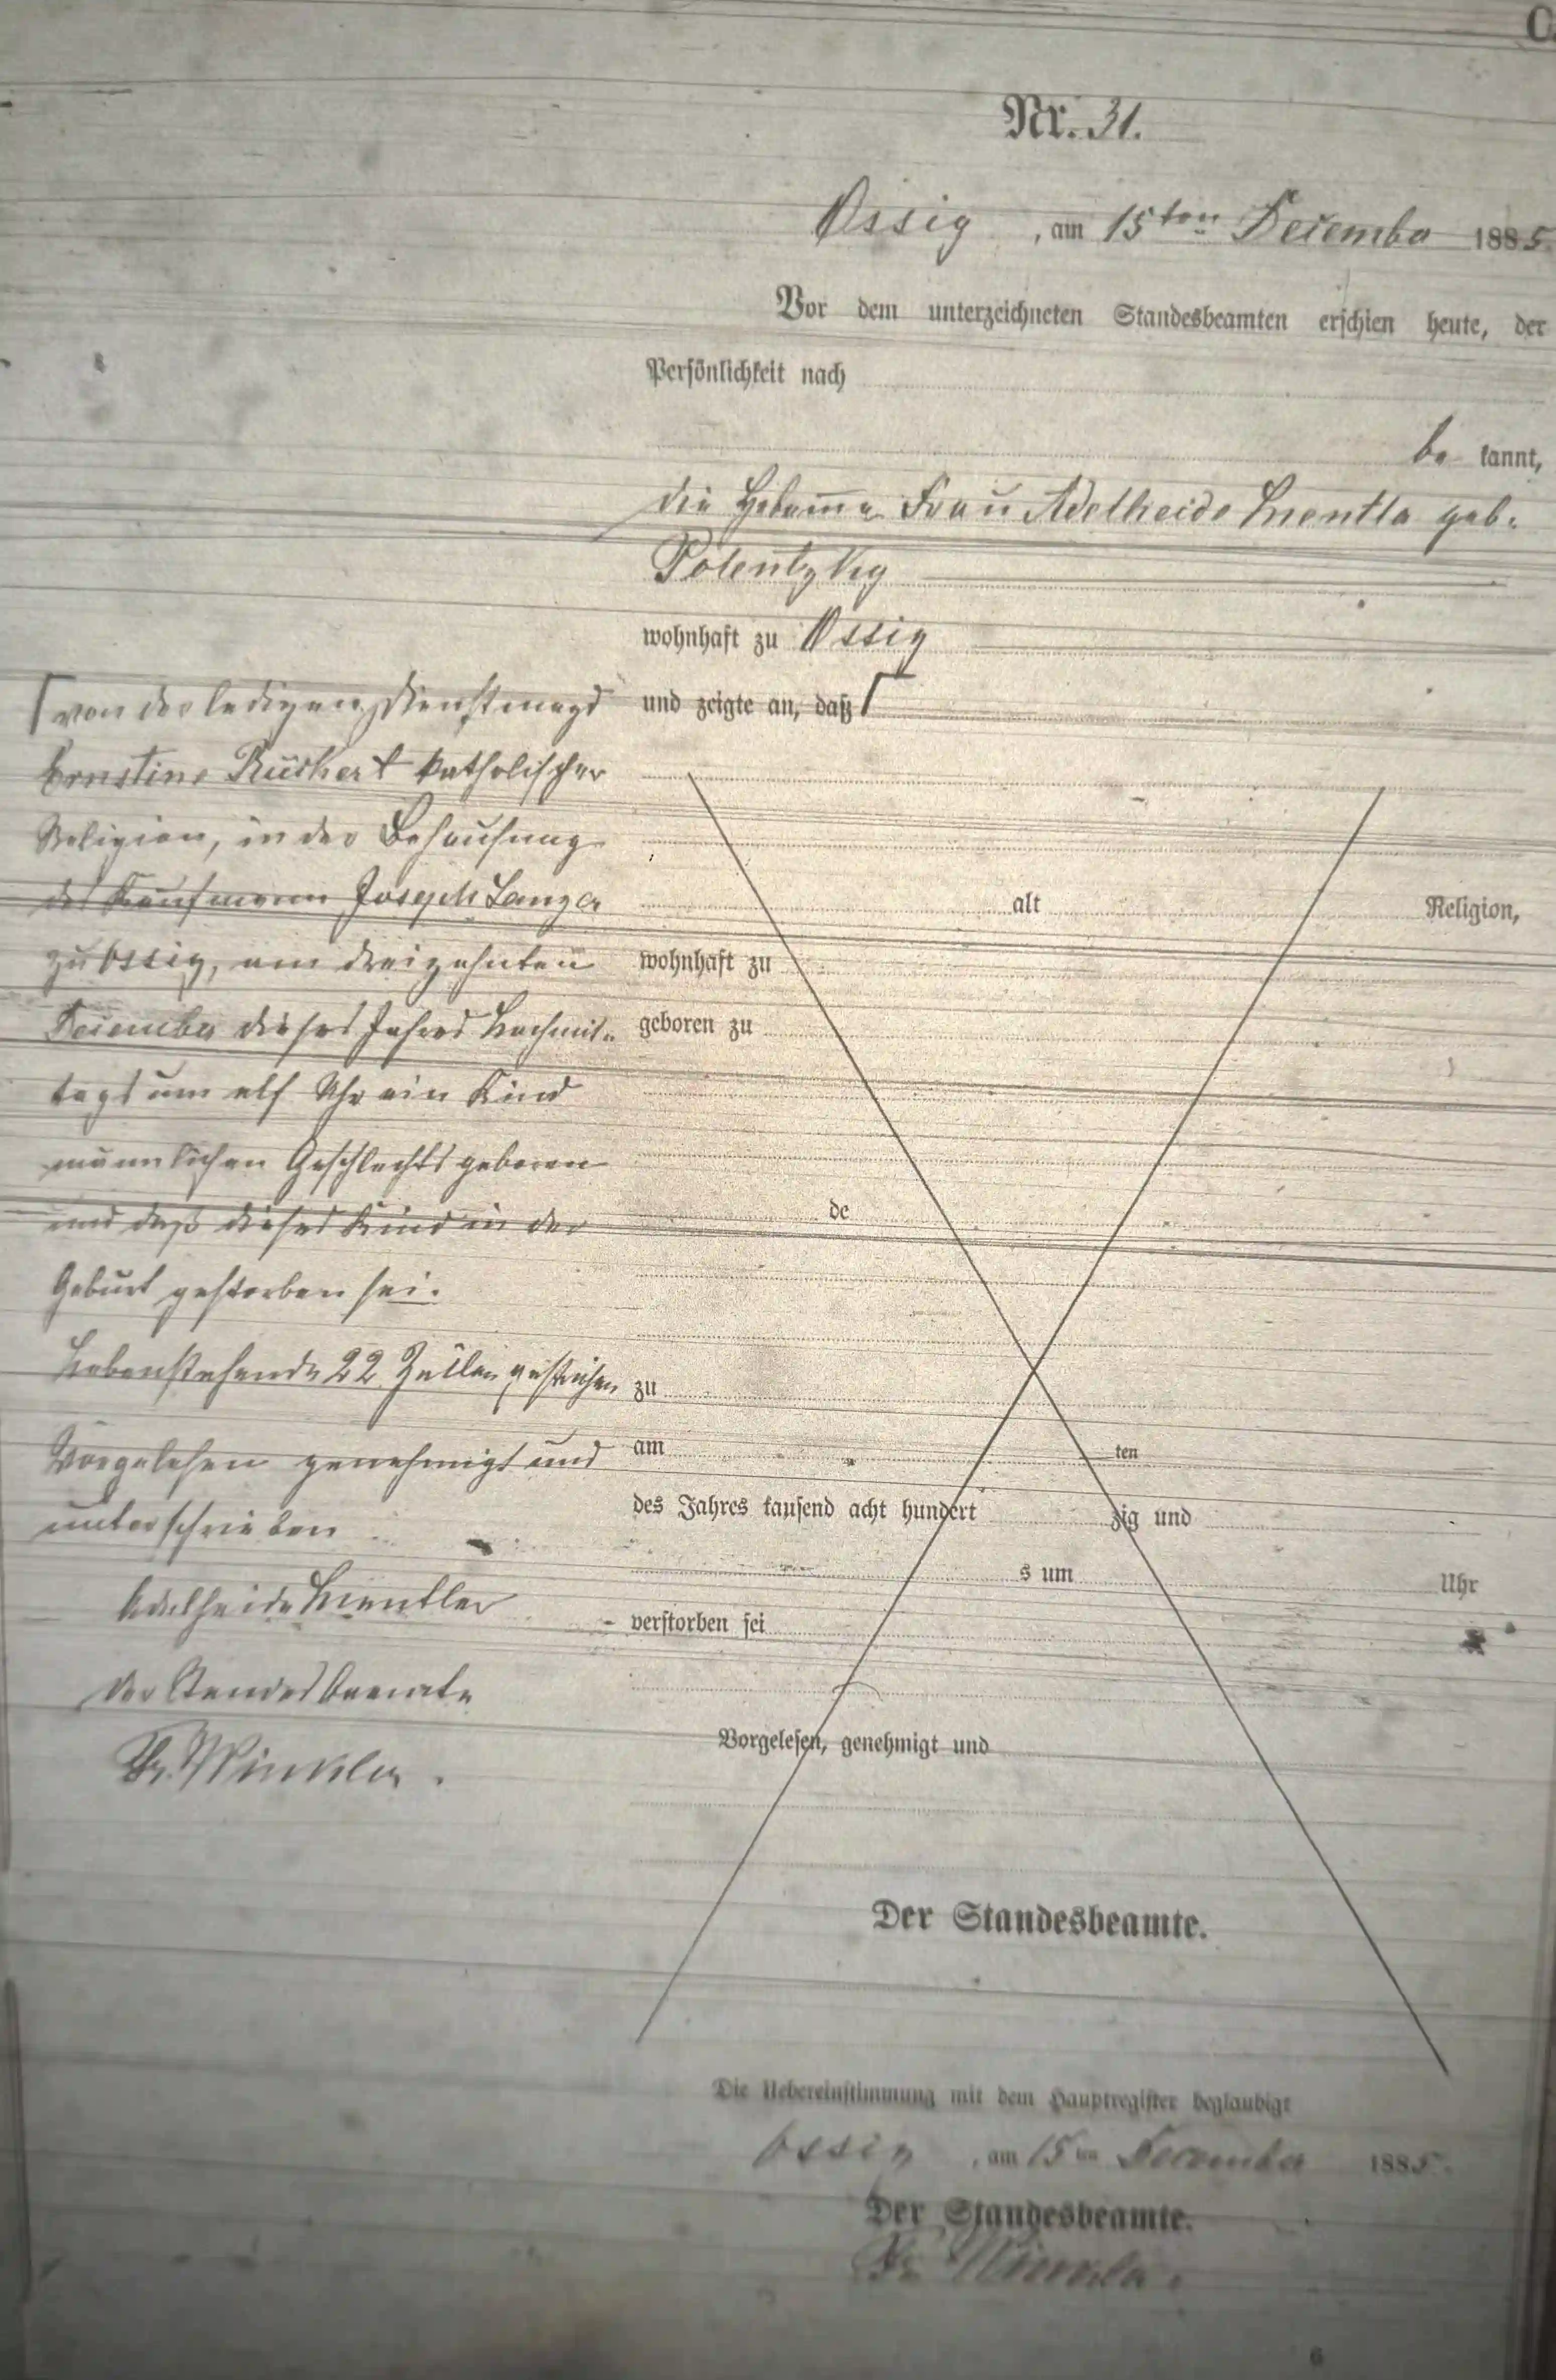 C
Nr. 31.
Ossig, am 15ten December 1885.
Vor dem unterzeichneten Standesbeamten erschien heute, der
Persönlichkeit nach
be kannt,
die Hebamme Frau Adelheide geb.
wohnhaft zu Ossig
und zeigte an, daß ┌
┌ von der ledigen Dienstmagd
Ernstine Rückert katholischer
Religion, in der Behausung
des Kaufmann Joseph Langer
zu Ossig, am dreizehnten
December dieses Jahres Nachmit-
tags um elf Uhr ein Kind
männlichen Geschlechts geboren
und daß dieses Kind in der
Geburt gestorben sei.
Nebenstehende 22 Zeilen gestrichen
Vorgelesen genehmigt und
unterschrieben
Adelheide
Der Standesbeamte
Winkler.
alt Religion,
wohnhaft zu
geboren zu
de
zu
am ten
des Jahres tausend acht hundert zig und
s um Uhr
verstorben sei
Vorgelesen, genehmigt und
Der Standesbeamte.
Die Uebereinstimmung mit dem Hauptregister beglaubigt
Ossig, am 15ten December 1885.
Der Standesbeamte.
Winkler.